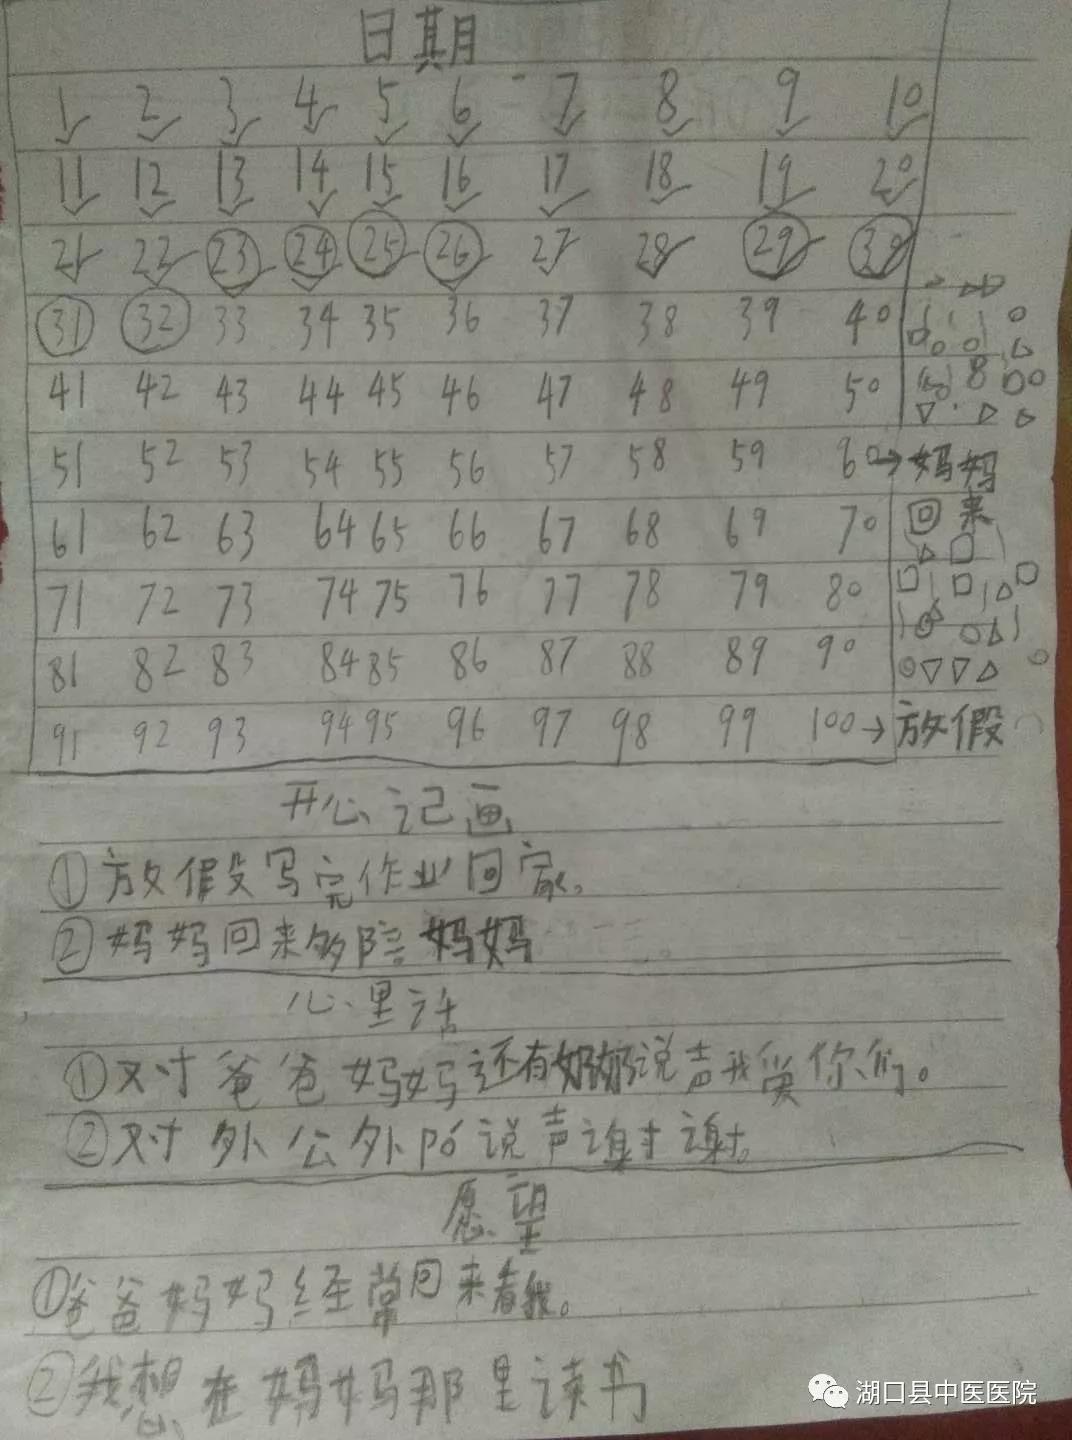 日期
1 2 3 4 5 6 7 8 9 10
11 12 13 14 15 16 17 18 19 20
21 22 23 24 25 26 27 28 29 30
31 32 33 34 35 36 37 38 39 40
41 42 43 44 45 46 47 48 49 50
51 52 53 54 55 56 57 58 59 60→妈妈
61 62 63 64 65 66 67 68 69 70 回来
71 72 73 74 75 76 77 78 79 80
81 82 83 84 85 86 87 88 89 90
91 92 93 94 95 96 97 98 99 100→放假
开心记画
①放假写完作业回家。
②妈妈回来多陪妈妈
心里话
①对爸爸妈妈还有奶奶说声我爱你们。
②对外公外po说声谢谢。
愿望
①爸爸妈妈经常回来看我。
②我想在妈妈那里读书
湖口县中医医院